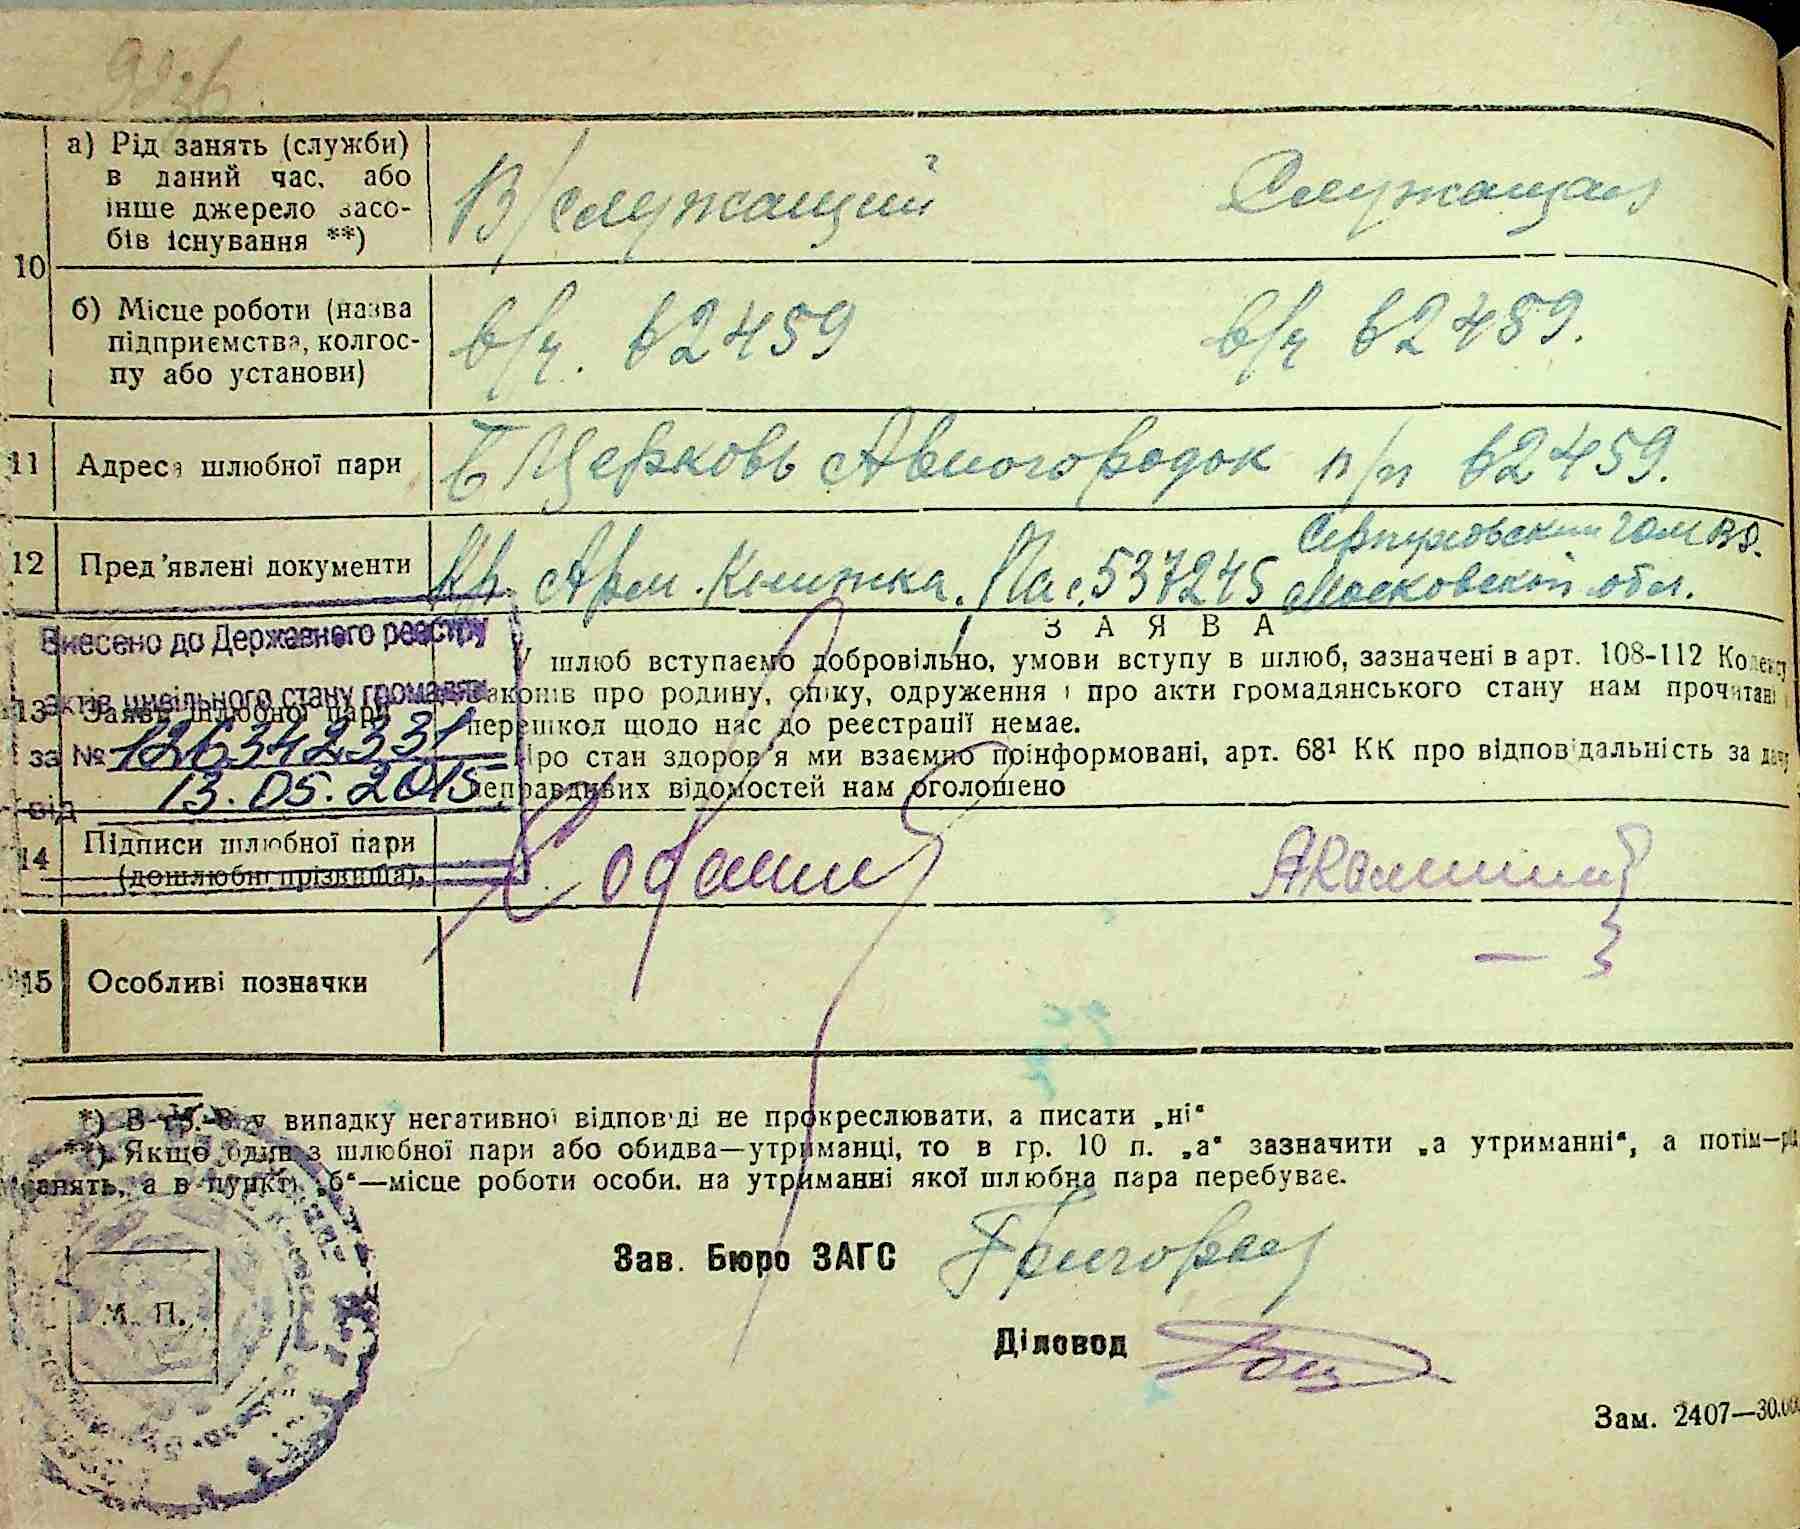 9236
10
а) Рід занять (служби)
в даний час, або
інше джерело засо-
бів існування **)
В/служащий
Служащая
б) Місце роботи (назва
підприємства, колгос-
пу або установи)
в/ч. 62459
в/ч 62459.
11
Адреса шлюбної пари
Б Церковь Авиогородок п/п 62459.
12
Пред'явлені документи
Кр. Арм. Книжка. Пас. 537245 Серпуховским
Московской обл.
Внесено до Державного реєстру
актів цивільного стану громадян
за № 126342331
від 13.05.2015
13
Заява шлюбної пари
ЗАЯВА
У шлюб вступаємо добровільно, умови вступу в шлюб, зазначені в арт. 108-112 Кодексу
законів про родину, опіку, одруження і про акти громадянського стану нам прочитані
перешкод щодо нас до реєстрації немає.
Про стан здоров'я ми взаємно поінформовані, арт. 68¹ КК про відповідальність за дачу
неправдивих відомостей нам оголошено
14
Підписи шлюбної пари
(дошлюбні прізвища).
15
Особливі позначки
*) В гр. 8 у випадку негативної відповіді не прокреслювати, а писати „ні“
**) Якщо один з шлюбної пари або обидва—утриманці, то в гр. 10 п. „а“ зазначити „а утриманні“, а потім—рід
занять, а в пункті „б“—місце роботи особи, на утриманні якої шлюбна пара перебуває.
Зав. Бюро ЗАГС
М. П.
Діловод
Зам. 2407—30.000